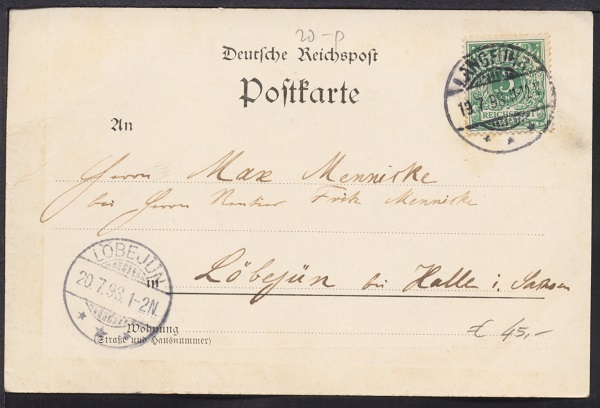 20-p
Deutsche Reichspost
Postkarte
LANGFUHR
19.7.98
5
REICHSPOST
An
Herrn Max Menniske
bei Herrn Rentier Fritz Menniske
LÖBEJÜN
20.7.98.1-2N.
in Löbejün bei Halle i. Sachsen
Wohnung
(Straße und Hausnummer)
45,-